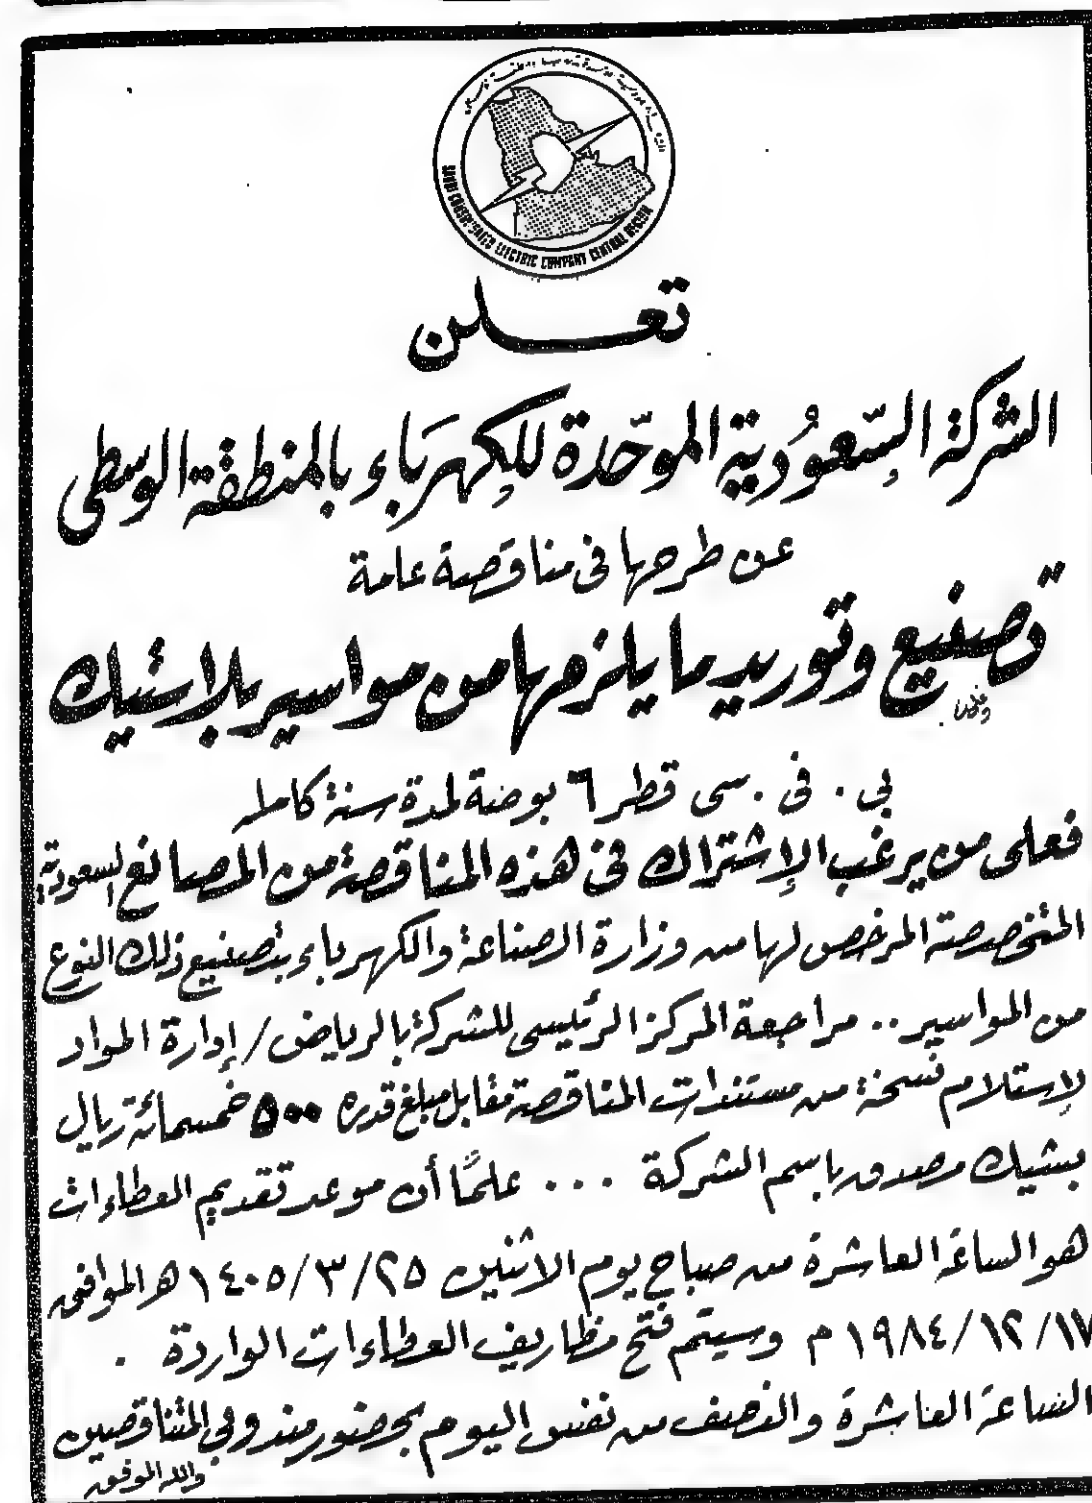 SAUDI CONSOLIDATED ELECTRIC COMPANY CENTRAL REGION
تعلن
الشركة السّعوُدية الموحّدة للكهرَباء بالمنطقة الوسطى
عن طرحها فى مناقصة عامة
تصنيع وتوريد ما يلزمها من مواسير بلاستيك
بى . فى . سى قطر ٦ بوصة لمدة سنة كاملة
فعلى من يرغب الإشتراك فى هذه المناقصة من المصانع السعودية
المتخصصة المرخص لها من وزارة الصناعة والكهرباء بتصنيع ذلك النوع
من المواسير .. مراجعة المركز الرئيسى للشركة بالرياض / إدارة المواد
لإستلام نسخة من مستندات المناقصة مقابل مبلغ قدره ٥٠٠ خمسمائة ريال
بشيك مصدق باسم الشركة ... علمًا أن موعد تقديم العطاءات
هو الساعة العاشرة من صباح يوم الاثنين ١٤٠٥/٣/٢٥ هـ الموافق
١٩٨٤/١٢/١٧ م وسيتم فتح مظاريف العطاءات الواردة .
الساعة العاشرة والنصف من نفس اليوم بحضور مندوبي المتناقصين
والله الموفق